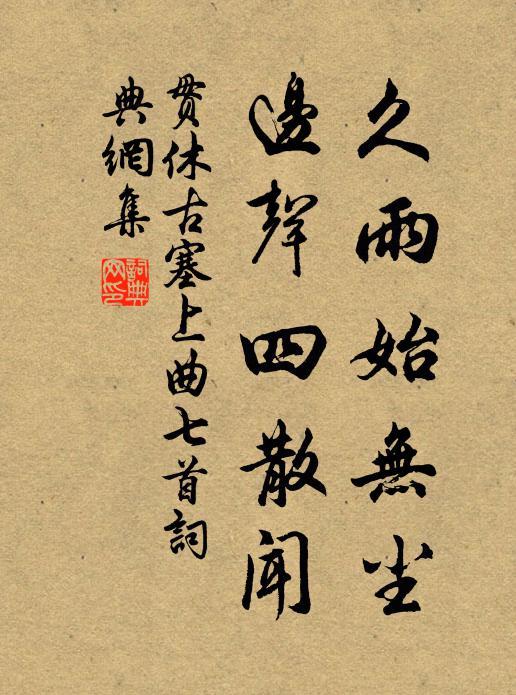 久雨始無尘
邊聲四散闻
贯休古塞上曲七首詞
典網集
詞典
网印